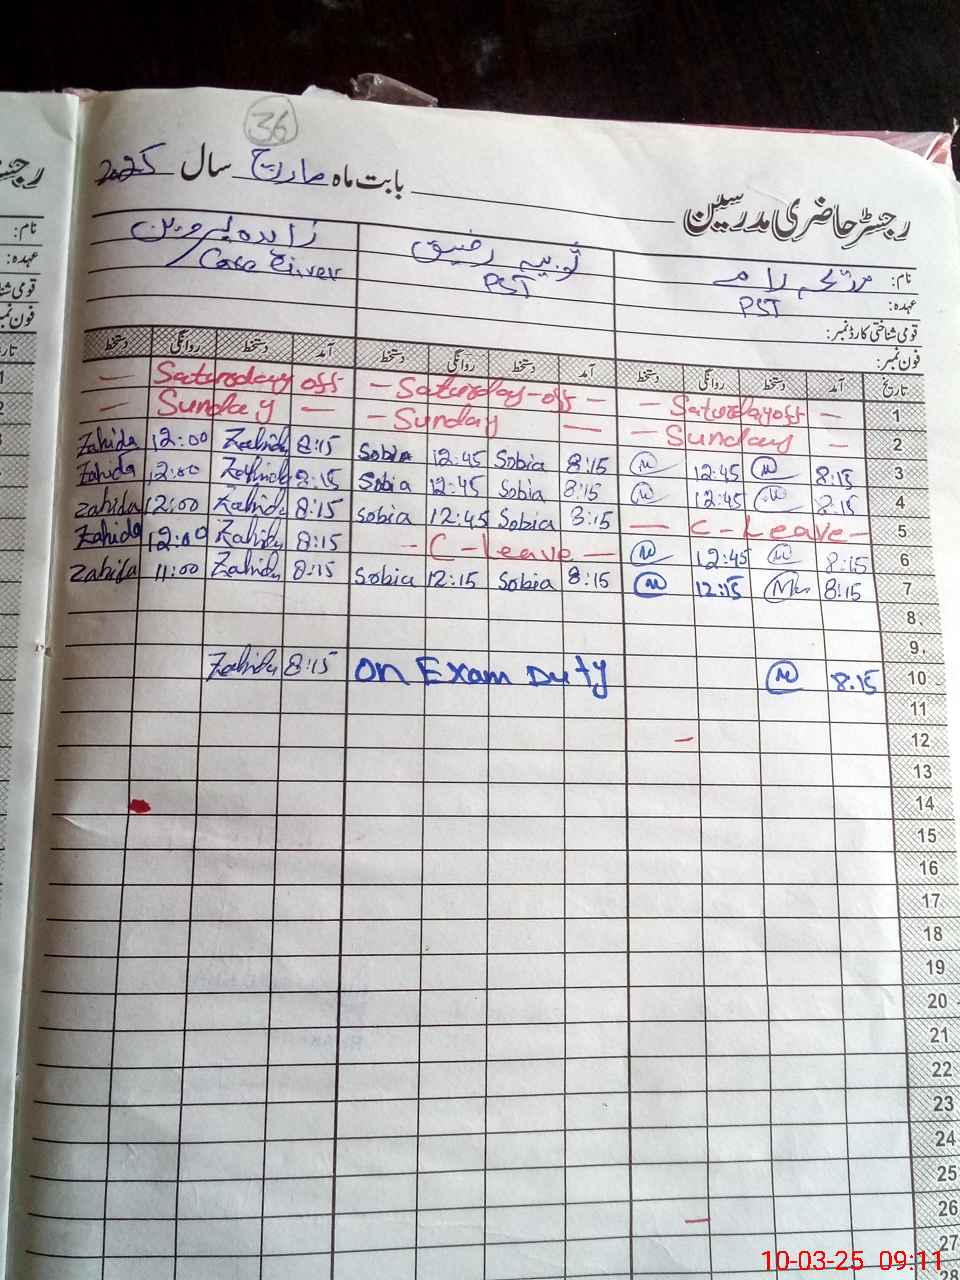 36
رجسٹر حاضری مدرسین بابت ماہ مارچ سال 2025
نام: مریم ثوبیہ رفیق زاہدہ پروین
عہدہ: PST PST Care Giver
قومی شناختی کارڈ نمبر:
فون نمبر:
تاریخ آمد دستخط روانگی دستخط آمد دستخط روانگی دستخط آمد دستخط روانگی دستخط
— Saturday off — Saturday-off — — Saturday off — 1
— Sunday — — Sunday — — Sunday — 2
Zahida 12:00 Zahida 8:15 Sobia 12:45 Sobia 8:15 M 12:45 M 8:15 3
Zahida 12:00 Zahida 8:15 Sobia 12:45 Sobia 8:15 M 12:45 M 8:15 4
Zahida 12:00 Zahida 8:15 Sobia 12:45 Sobia 8:15 — C-Leave — 5
Zahida 12:00 Zahida 8:15 — C-Leave — M 12:45 M 8:15 6
Zahida 11:00 Zahida 8:15 Sobia 12:15 Sobia 8:15 M 12:15 8:15 7
8
9
Zahida 8:15 on Exam Duty M 8:15 10
11
12
13
14
15
16
17
18
19
20
21
22
23
24
25
26
27
28
10-03-25 09:11